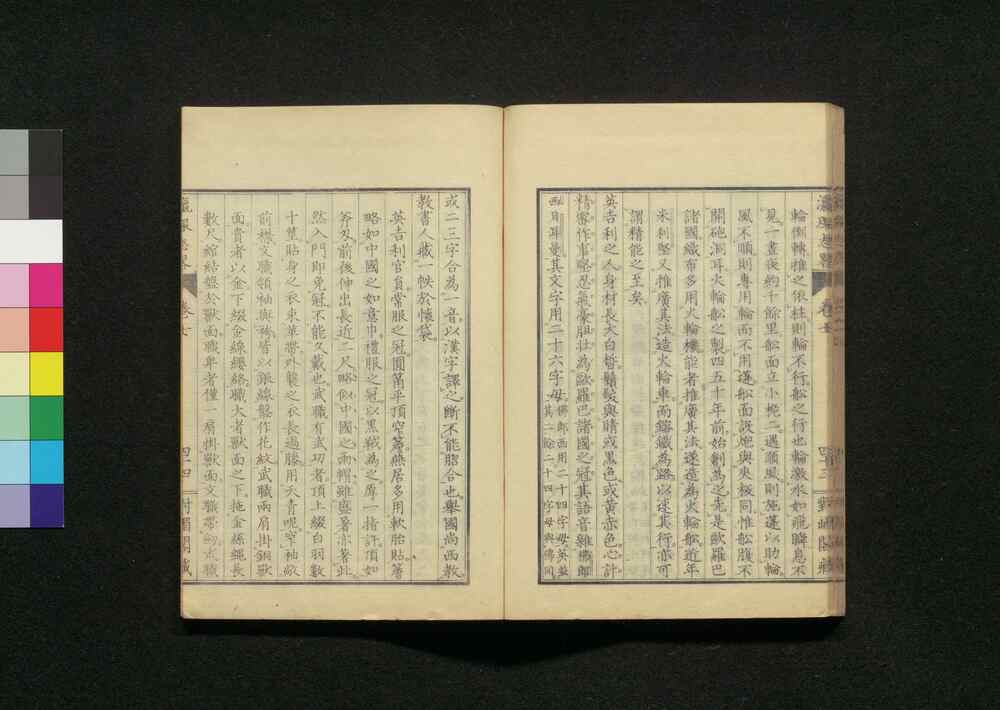 輪側轉推之依柱則輪不行船之行也輪激水如飛瞬息不
見一晝夜約千餘里船面立小桅二遇順風則施蓬以助輪
風不順則專用輪而不用蓬船面設炮與夾板同惟船腹不
開砲洞耳火輪船之製四五十年前始創為之先是歐羅巴
諸國織布多用火輪機能者推廣其法遂造為火輪船近年
米利堅又推廣其法造火輪車而鑄鐵為路以速其行亦可
謂精能之至矣
英吉利之人身材長大白皙鬚髮與睛或黑色或黃赤色心計
精密作事堅忍氣豪膽壯為歐羅巴諸國之冠其語音雜佛郎
西日耳曼其文字用二十六字母佛郎西用二十四字母英益
其二餘二十四字母與佛同
瀛環志畧
卷七
四三
對嵋閣藏
或二三字合為一音以漢字譯之斷不能脗合也舉國尚西教
教書人藏一帙於懷袋
英吉利官員常服之冠圓筩平頂窄簷燕居多用軟胎貼簷
略如中國之如意巾禮服之冠以黑絨為之厚一指許頂如
笄又前後伸出長近二尺略似中國之雨帽雖盛暑亦著此
然入門即免冠不能久戴也武職有武功者頂上綴白羽數
十莖貼身之衣束革帶外襲之衣長過膝用天青呢窄袖敞
前襟文職領袖與袴皆以銀線盤作花紋武職兩肩掛銅獸
面貴者以金下綴金線纓絡職大者獸面之下拖金絲繩長
數尺綰結盤於獸面職卑者僅一肩掛獸面文職帶劒武職
卷七
四四
對嵋閣藏